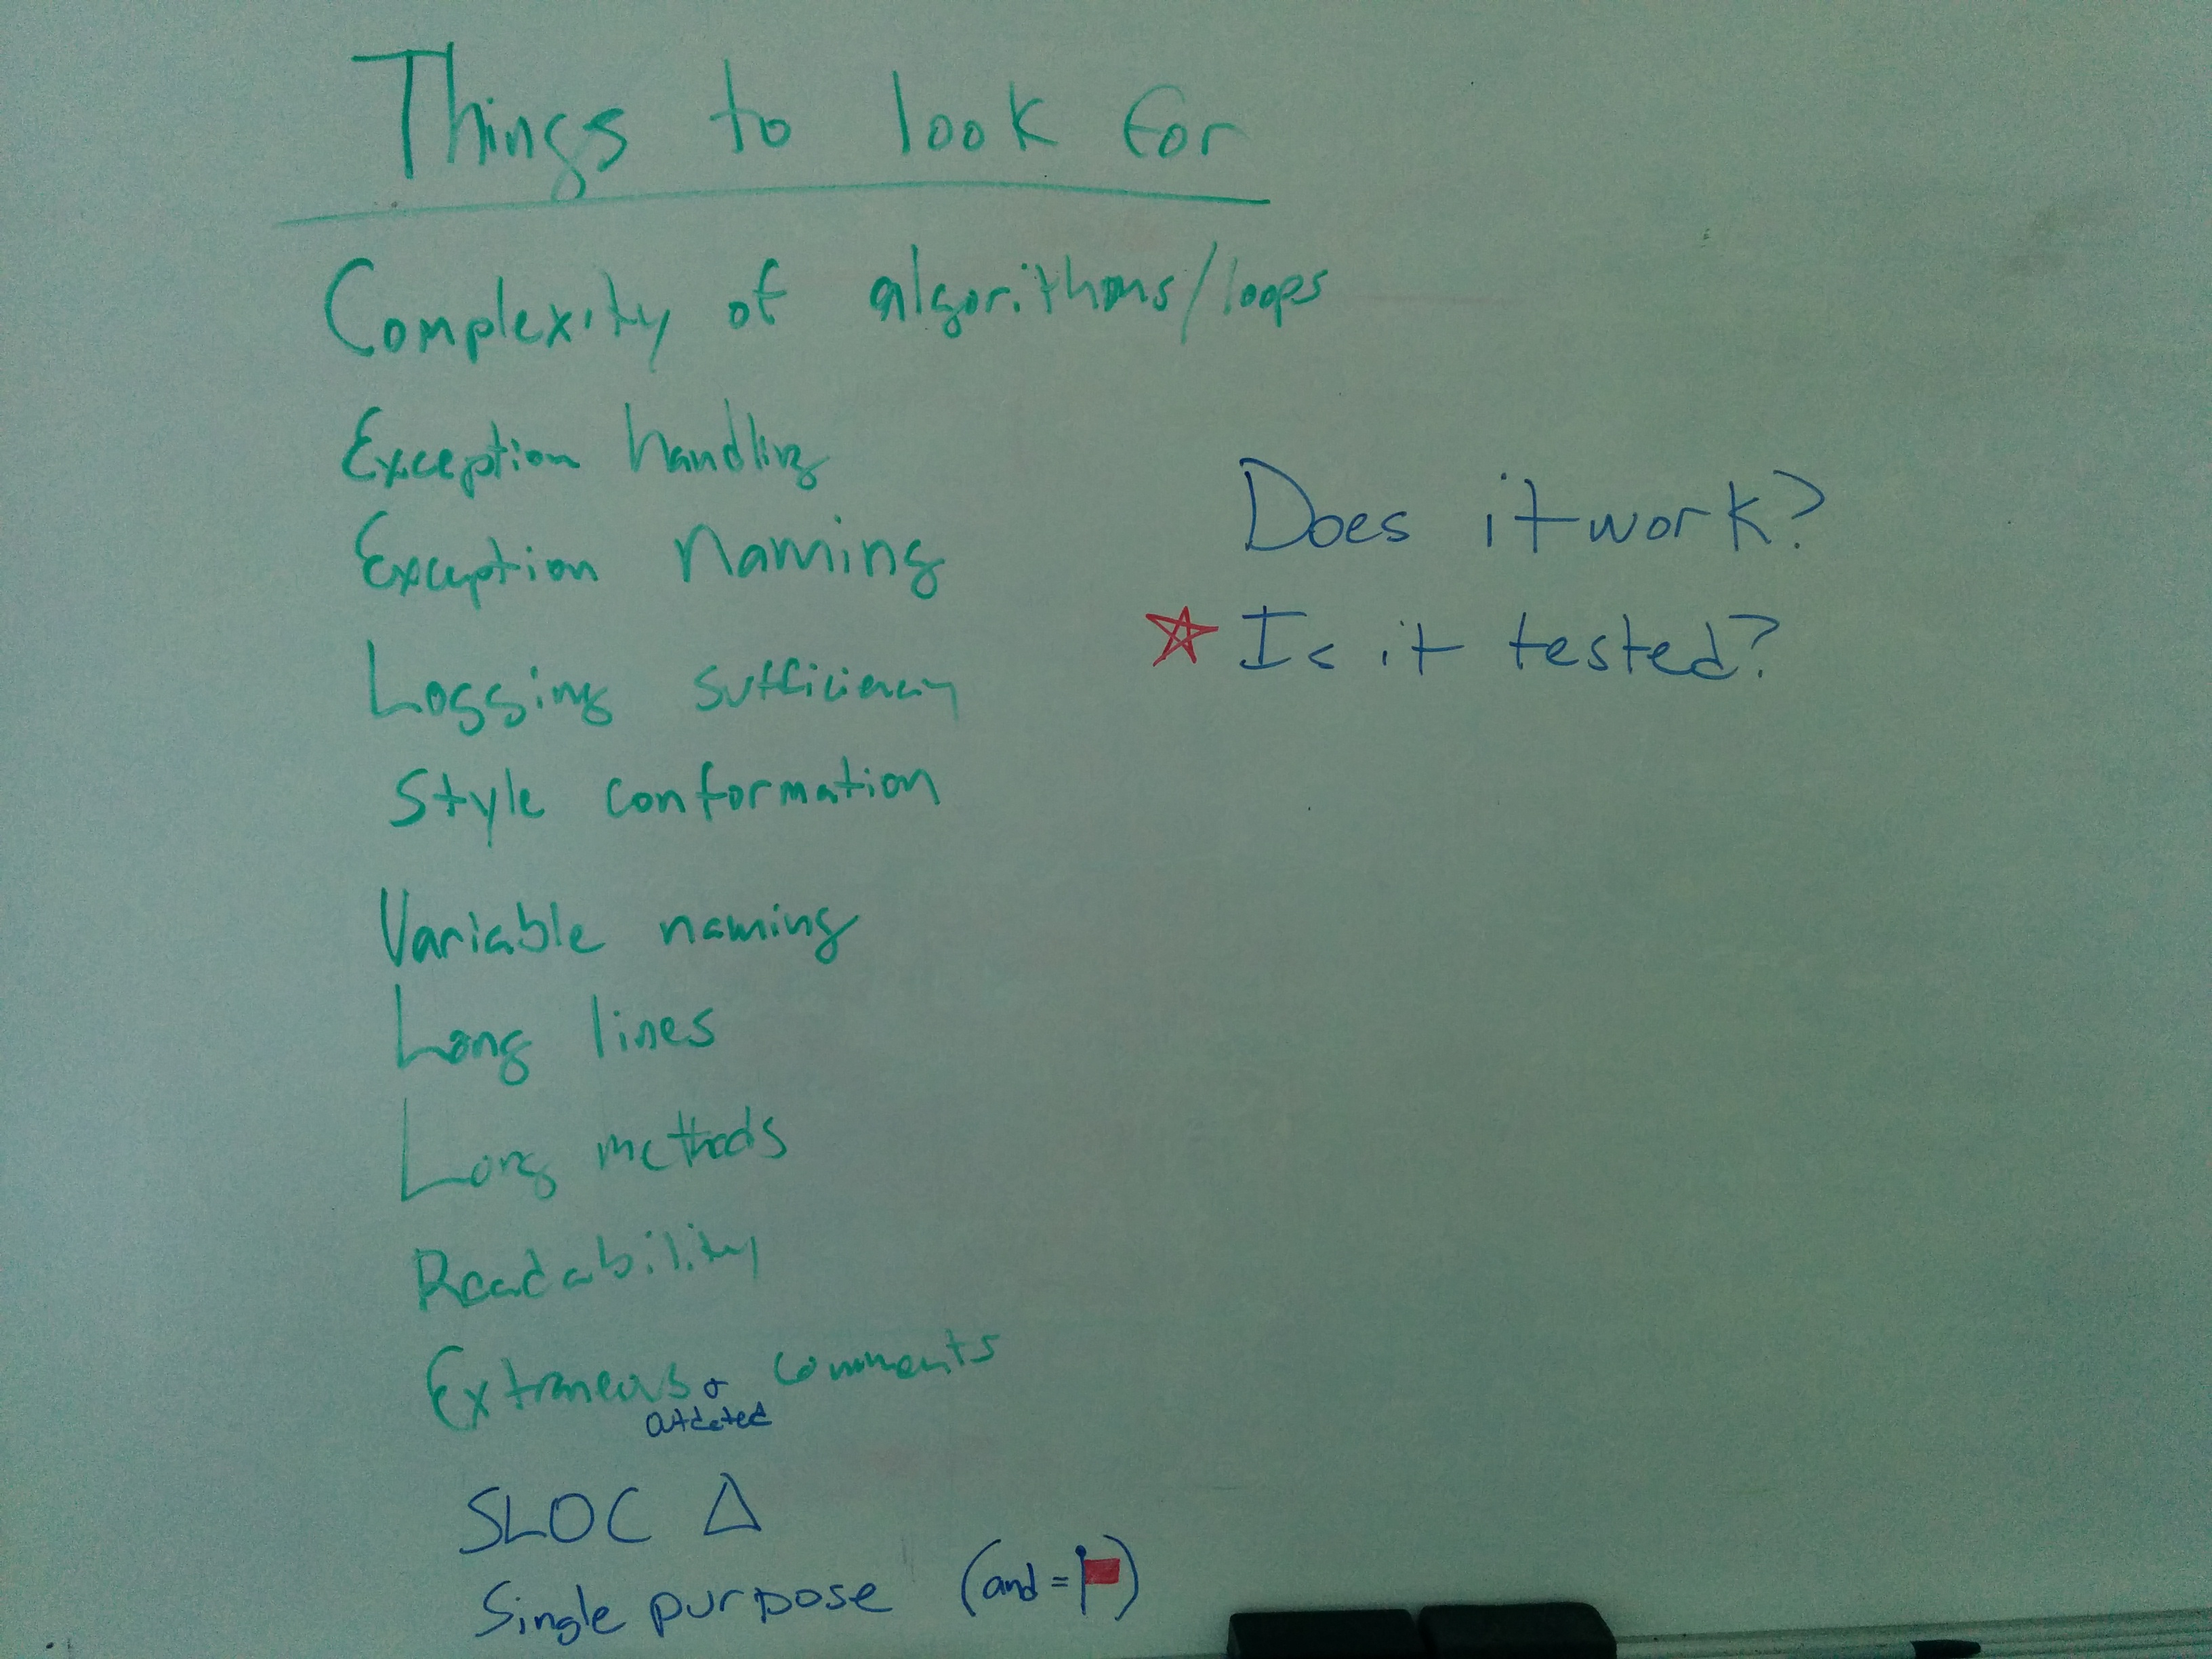 Things to look for
Complexity of algorithms/loops
Exception handling
Exception Naming
Logging sufficiency
Style conformation
Variable naming
Long lines
Long methods
Readability
Extraneous & comments
outdated
SLOC Δ
Single purpose (and = )
Does it work?
Is it tested?